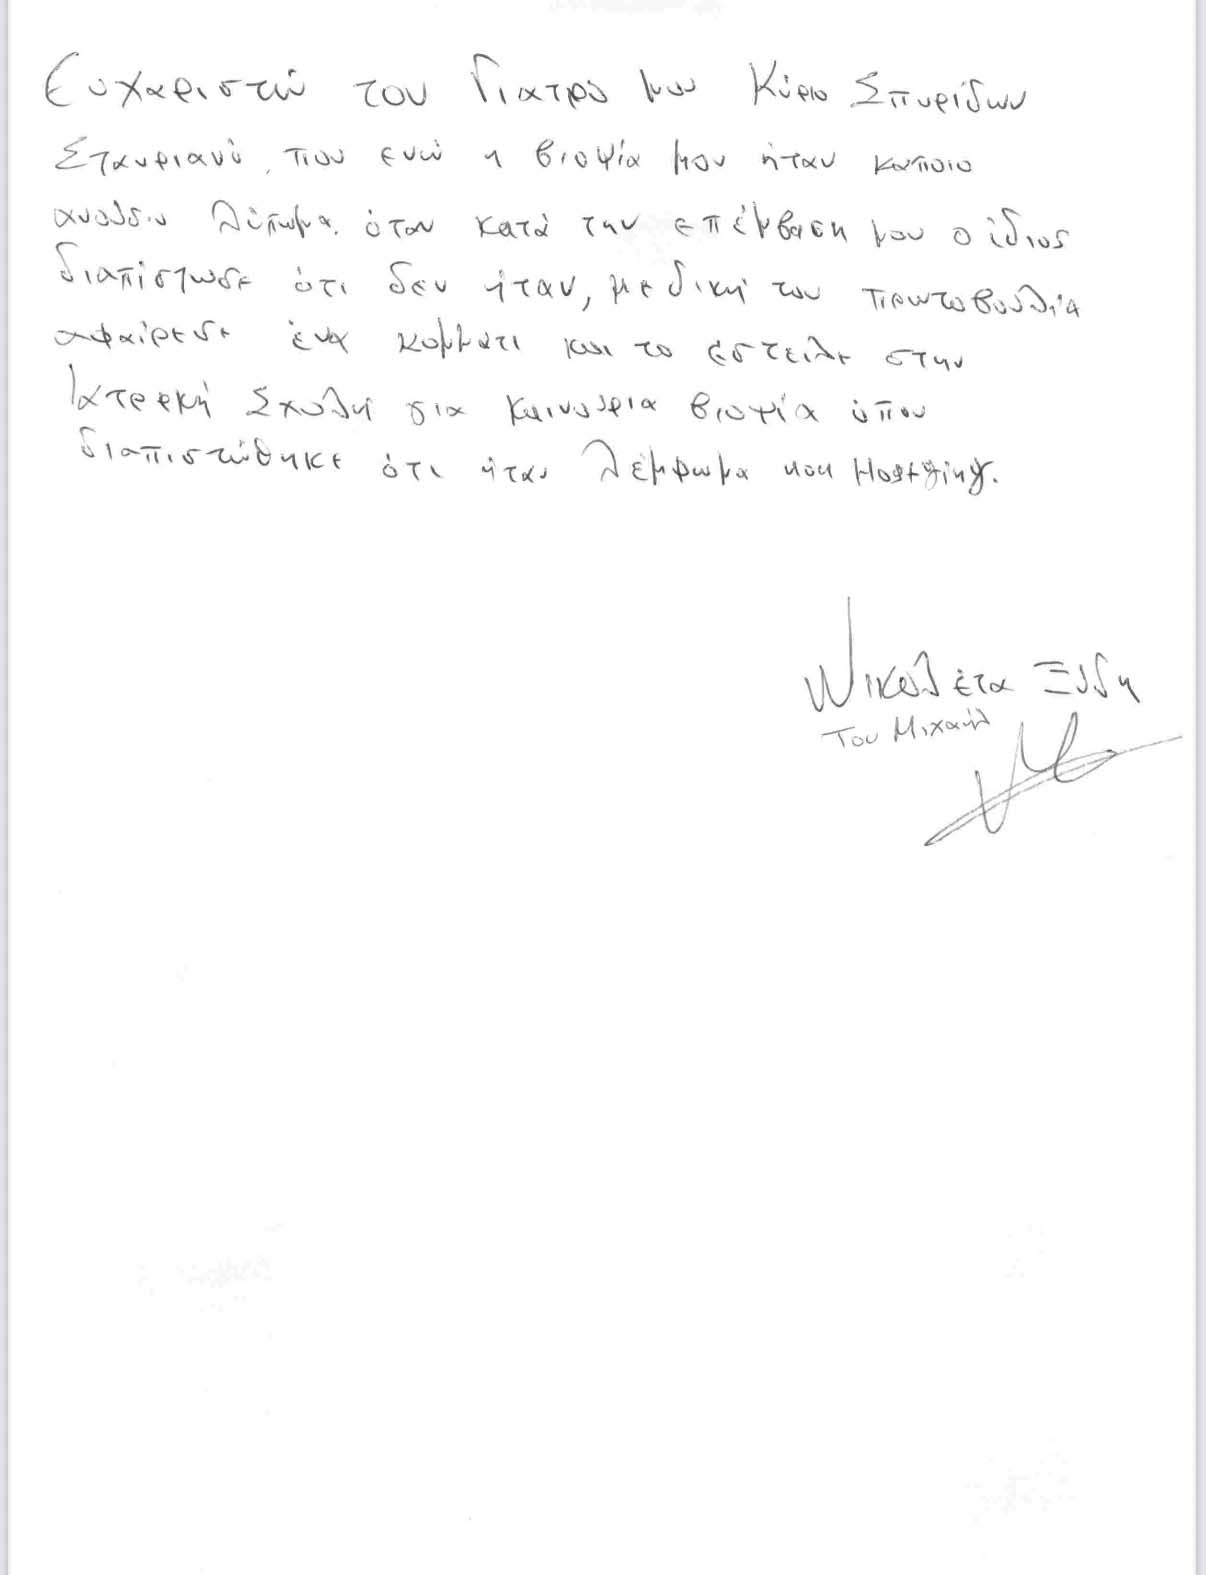 Ευχαριστώ τον Γιατρό μου Κύριο Σπυρίδων
Σταυριανό, που ενώ η βιοψία μου ήταν κάποιο
λίπωμα. όταν κατά την επέμβαση μου ο ίδιος
διαπίστωσε ότι δεν ήταν, με δική του πρωτοβουλία
αφαίρεσε ένα κομμάτι και το έστειλε στην
Ιατρική Σχολή για καινούρια βιοψία όπου
διαπιστώθηκε ότι ήταν λέμφωμα non
Νικολέτα Ξύδη
Του Μιχαήλ